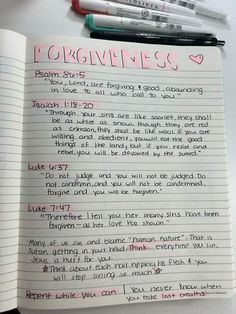 FORGIVENESS ♡
Psalm 86:5
"You, Lord, are forgiving & good, abounding
in love to all who call to you."
Isaiah 1:18-20
"Though your sins are like scarlet, they shall
be as white as snow; though they are red
as crimson, they shall be like wool. If you are
willing and obedient, you will eat the good
things of the land; but if you resist and
rebel, you will be devoured by the sword."
Luke 6:37
"Do not judge and you will not be judged. Do
not condemn, and you will not be condemned.
forgive and you will be forgiven."
Luke 7:47
"Therefore I tell you her many sins have been
forgiven - as her love has shown."
Many of us sin and blame "human nature". That is
Satan getting in your head. Think... everytime you sin,
Jesus is hurt for you.
☆Think about each nail ripping his flesh & you
will stop sinning so much☆
Repent while you can | You never know when
you take last breath